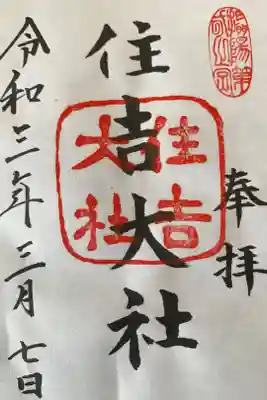 奉拝
住吉大社
住吉大社
令和三年三月七日